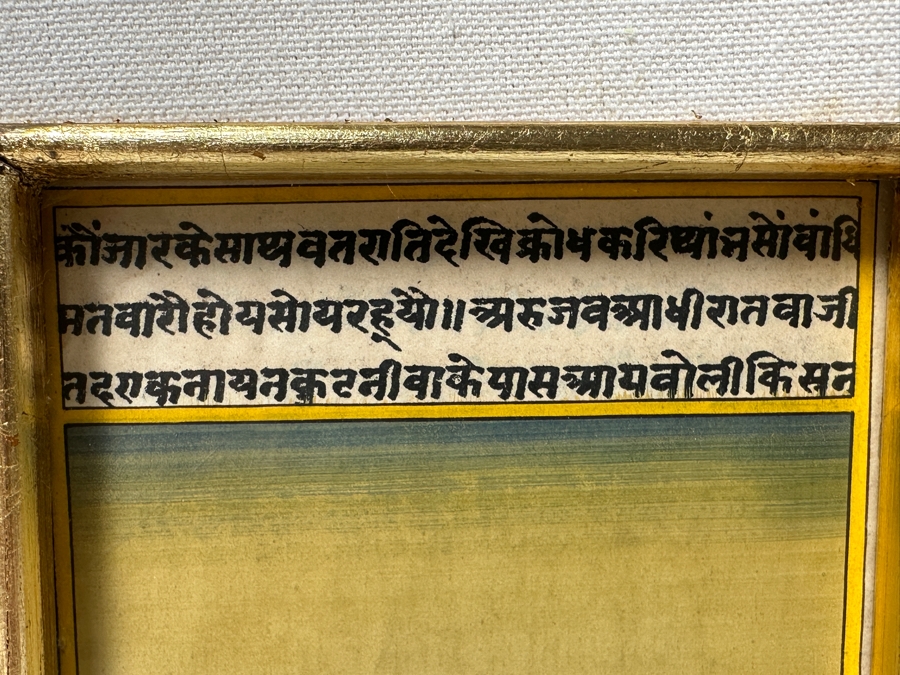 कौंजारकेसाथ्यवतरातिदेखिक्रोधकरिष्यांनसोंवांधि
मतवारौहोयसोयरह्यौ॥अरुजवआधीरातवाजी
तदएकनायनकुटनीवाकेपासआयवोलीकिसुन